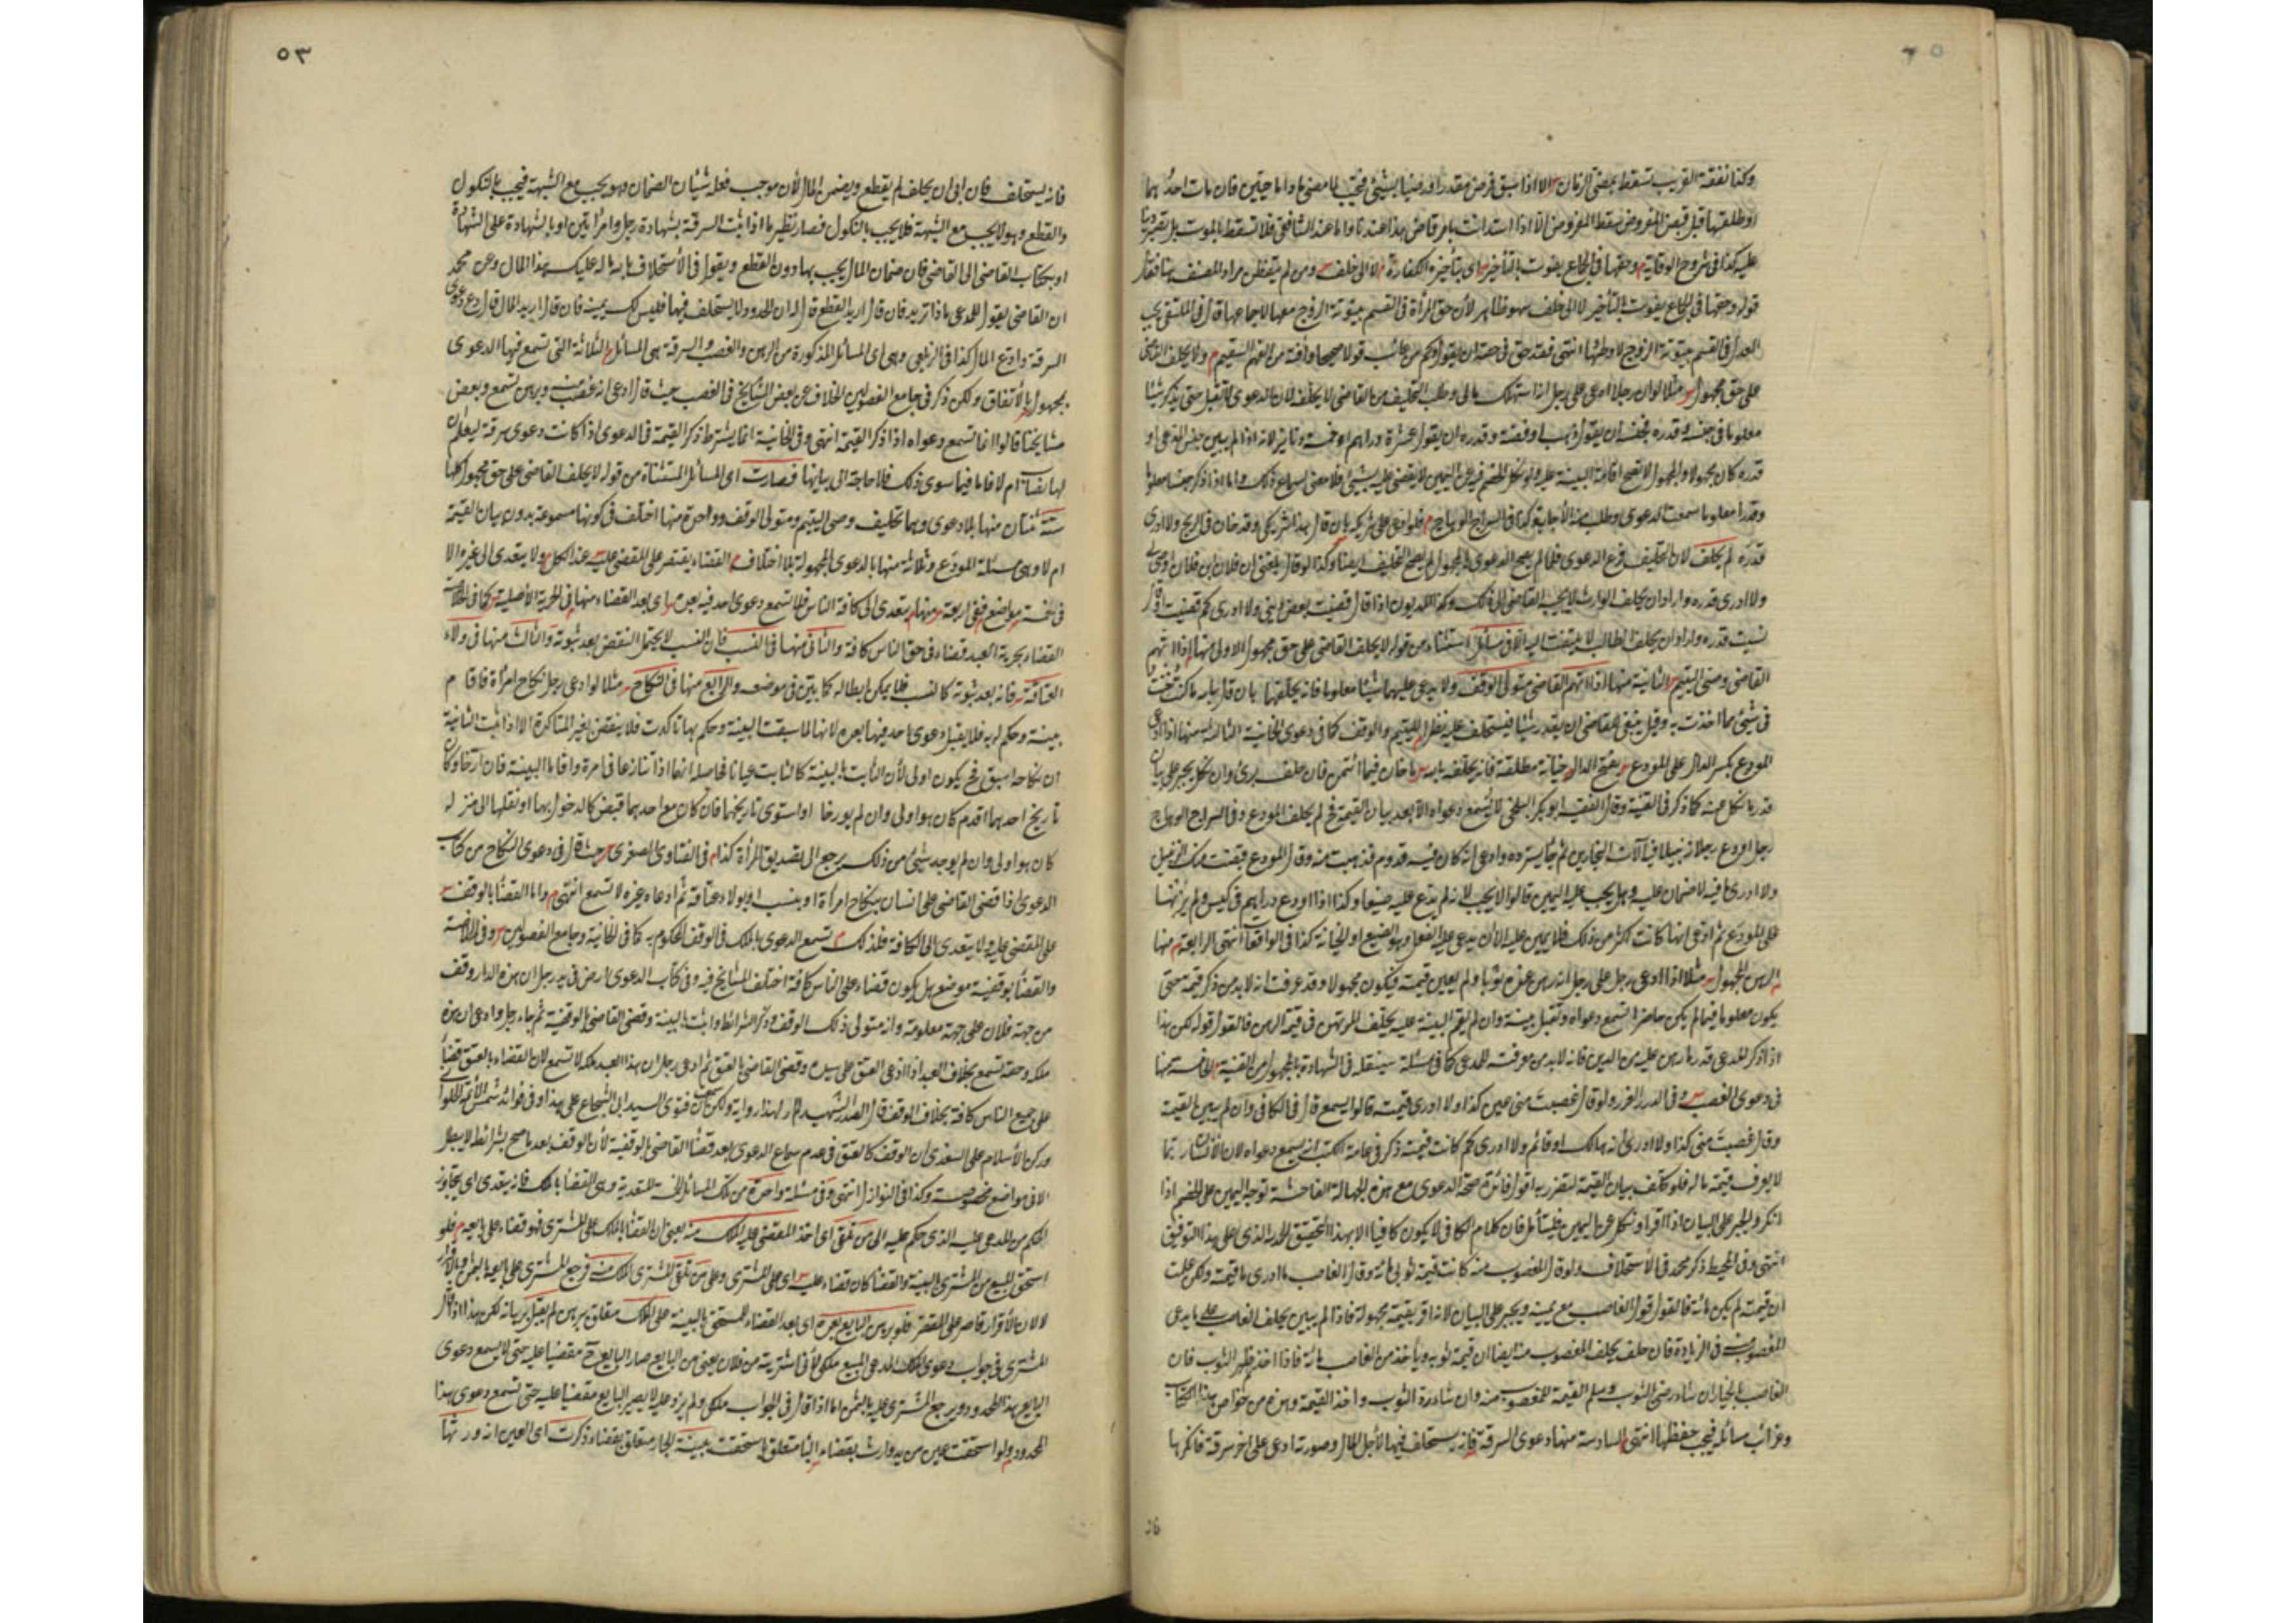 وكذا نفقة القريب تسقط بمضي الزمان الا اذا سبق فرض مقدر او رضيا بشيئ فتجب لما مضى ما داما حيين فان مات احدهما
او طلقها قبل قبض المفروض سقط المفروض الا اذا استدانت بامر قاض هذا عندنا واما عند الشافعي فلا تسقط بالموت بل تصير دينا
عليه كذا في شروح الوقاية وحقها في الجماع يفوت بالتأخير اى بتأخير الكفارة لا الى خلف ومن لم يتفطن مراد المصنف
قوله وحقها في الجماع يفوت بالتأخير لا الى خلف سهو ظاهر لان حق المرأة في القسم بيتوتة الزوج معها لا جماعها قال في الملتقى يجب
العدل في القسم بيتوتة الزوج لا وطئها انتهى فقد حق في حقه ان يقول وكم من عائب قولا صحيحا وآفته من الفهم السقيم ولا يحلف القاضي
على حق مجهول مثلا لو ان رجلا ادعى على رجل انه استهلك مالى وطلب التحليف من القاضي لا يحلفه لان الدعوى لا تقبل حتى يذكر شيئا
معلوما في جنسه وقدره فجنسه ان يقول ذهب او فضة وقدره ان يقول عشرة دراهم او خمسة دنانير لانه اذا لم يبين جنس المدعى او
قدره كان مجهولا والمجهول لا تصح اقامة البينة عليه ولو نكل الخصم فيه عن اليمين لا يقضى عليه بشيئ فلا معنى لسماع ذلك واما اذا ذكر جنسا معلوما
وقدرا معلوما سمعت الدعوى وطلب منه الاجابة كذا في السراج الوهاج فلو ادعى على شريكه بان قال هذا شريكى وقد خان في الربح ولا ادرى
قدره لم يحلف لان التحليف فرع الدعوى فلما لم يصح الدعوى في المجهول لم يصح التحليف ايضا وكذا لو قال بلغنى ان فلان بن فلان اوصى لى
ولا ادرى قدره واراد ان يحلف الوارث لا يجيب القاضي الى ذلك وكذا المديون اذا قال قضيت بعض دينى ولا ادرى كم قضيت او قال
نسيت قدره واراد ان يحلف الطالب لا يلتفت اليه الا في مسائل استثناء من قوله لا يحلف القاضي على حق مجهول الاولى منها اذا اتهم
القاضي وصى اليتيم الثانية منها اذا اتهم القاضي متولى الوقف ولا يدعى عليهما شيئا معلوما فانه يحلفهما بان قال بالله ما كنت خنت
في شيئ مما اخذت به وقيل ينبغى للقاضي ان يقدر شيئا فيستحلف عليه نظرا لليتيم والوقف كما في دعوى الخانية الثالثة منها اذا ادعى
المودع بكسر الدال على المودع بفتح الدال خيانة مطلقة فانه يحلفه بالله ما خان فيما ائتمن فان حلف برئ وان نكل يجبر على بيان
قدر ما نكل عنه كما ذكر في القنية وقال الفقيه ابو بكر البلخي لا تسمع دعواه الا بعد بيان القيمة فح لم يحلف المودع وفي السراج الوهاج
رجل اودع رجلا زنبيلا فيه آلات النجارين ثم جاء يسترده وادعى انه كان فيه قدوم فذهبت منه وقال المودع قبضت منك الزنبيل
ولا ادرى ما فيه لا ضمان عليه وهل يجب عليه اليمين قالوا لا يجب لانه لم يدع عليه صنيعا وكذا اذا اودع دراهم في كيس ولم يزنها
على المودع ثم ادعى انها كانت اكثر من ذلك فلا يمين عليه الا ان يدعى عليه الفعل وهو التضييع او الخيانة كذا في الواقعات انتهى الرابعة منها
الرهن المجهول مثلا اذا ادعى رجل على رجل انه رهن عنده ثوبا ولم يعين قيمته فيكون مجهولا وقد عرفت انه لا بد من ذكر قيمته حتى
يكون معلوما فيما لم يكن حاضرا تسمع دعواه وتقبل بينته وان لم يقم البينة عليه يحلف المرتهن في قيمة الرهن فالقول قوله لكن هذا
اذا ذكر المدعى قدر ما رهن عليه من الدين فانه لا بد من معرفته للمدعى كما في مسئلة سينقله في الشهادة بالمجهول من القنية الخامسة منها
في دعوى الغصب وفي الدرر الغرر ولو قال غصبت منى عين كذا ولا ادرى قيمته قالوا يسمع قال في الكافى وان لم يبين القيمة
وقال غصبت منى كذا ولا ادرى انه هالك او قائم ولا ادرى كم كانت قيمته ذكر في عامة الكتب انه يسمع دعواه لان الانسان ربما
لا يعرف قيمة ماله فلو كلف بيان القيمة لتضرر به اقول فائدة صحة الدعوى مع هذه الجهالة الفاحشة توجه اليمين على الخصم اذا
انكر والجبر على البيان اذا اقر او نكل عن اليمين فليتأمل فان كلام الكافى لا يكون كافيا الا بهذا التحقيق الحمد لله الذى على هذا التوفيق
انتهى وفي المحيط ذكر محمد في الاستحلاف ولو قال المغصوب منه كانت قيمة ثوبى مائة وقال الغاصب ما ادرى ما قيمته ولكن علمت
ان قيمته لم يكن مائة فالقول قول الغاصب مع يمينه ويجبر على البيان لانه اقر بقيمة مجهولة فاذا لم يبين يحلف الغاصب على ما يدعى
المغصوب منه في الزيادة فان حلف يحلف المغصوب منه ايضا ان قيمة ثوبه ويأخذ من الغاصب مائة فاذا اخذ ظهر الثوب فان
الغاصب بالخيار ان شاء رضى الثوب وسلم القيمة للمغصوب منه وان شاء رد الثوب واخذ القيمة وهذه من خواص هذا الكتاب
وغرائب مسائله فيجب حفظها انتهى السادسة منها دعوى السرقة فانه يستحلف فيها لاجل المال وصورته ادعى على آخر سرقة فانكرها
٥٣
فانه يستحلف فان ابى ان يحلف لم يقطع ويضمن المال لان موجب فعله شيئان الضمان وهو يجب مع الشبهة فيجب بالنكول
والقطع وهو لا يجب مع الشبهة فلا يجب بالنكول فصار نظير ما اذا ثبت السرقة بشهادة رجل وامرأتين او بالشهادة على الشهادة
او بكتاب القاضى الى القاضى فان ضمان المال يجب بها دون القطع ويقول في الاستحلاف بالله ما له عليك هذا المال وعن محمد
ان القاضى يقول للمدعى ماذا تريد فان قال اريد القطع قال له ان الحدود لا يستحلف فيها فليس لك يمينه فان قال اريد المال قال دع دعوى
السرقة وادع المال كذا في الزيلعى وهى اى المسائل المذكورة من الرهن والغصب والسرقة هى المسائل الثلاثة التى تسمع فيها الدعوى
بمجهول بالاتفاق ولكن ذكر في جامع الفصولين الخلاف عن بعض المشايخ في الغصب حيث قال ادعى انه غصب منه وبرهن تسمع وبعض
مشايخنا قالوا انما تسمع دعواه اذا ذكر القيمة انتهى وفي الخانية انما يشترط ذكر القيمة في الدعوى اذا كانت دعوى سرقة ليعلم ان
لها نصاب ام لا فاما فيما سوى ذلك فلا حاجة الى بيانها فصارت اى المسائل المستثناة من قوله لا يحلف القاضى على حق مجهول كلها
ستة ثنتان منها بلا دعوى وهما تحليف وصى اليتيم ومتولى الوقف وواحدة منها اختلف في كونها مسموعة بدون بيان القيمة
ام لا وهى مسئلة المودع وثلاثة منها بالدعوى المجهولة بلا اختلاف القضاء يقتصر على المقضى عليه عند الكل ولا يتعدى الى غيره الا
في خمسة مواضع ففى اربعة منها يتعدى الى كافة الناس فلا تسمع دعوى احد فيه بعده اى بعد القضاء منها في الحرية الاصلية كما في الخلاصة
القضاء بحرية العبد قضاء في حق الناس كافة والثانى منها في النسب فان النسب لا يحتمل النقض بعد ثبوته والثالث منها في ولاء
العتاقة فانه بعد ثبوته كالنسب فلا يمكن ابطاله كما بين في موضعه والرابع منها في النكاح مثلا لو ادعى رجل نكاح امرأة فاقام
بينة وحكم له به فلا يقبل دعوى احد فيها بعده لانها لما سبقت البينة وحكم بها تأكدت فلا ينقض بغير المتأكدة الا اذا اثبت الثانية
ان نكاحه اسبق فح يكون اولى لان الثابت بالبينة كالثابت عيانا فحاصله انهما اذا تنازعا في امرأة واقاما البينة فان ارخا وكان
تاريخ احدهما اقدم كان هو اولى وان لم يورخا او استوى تاريخهما فان كان مع احدهما قبض كالدخول بها او نقلها الى منزله
كان هو اولى وان لم يوجد شيئ من ذلك يرجع الى تصديق المرأة كذا في الفتاوى الصغرى حيث قال في دعوى النكاح من كتاب
الدعوى اذا قضى القاضى على انسان بنكاح امرأة او بنسب او بولاء عتاقة ثم ادعاه غيره لا تسمع انتهى واما القضاء بالوقف
على المقضى عليه ولا يتعدى الى الكافة فلذلك تسمع الدعوى بالملك في الوقف المحكوم به كما في الخانية وجامع الفصولين وفي الخلاصة
والقضاء بوقفية موضع هل يكون قضاء على الناس كافة اختلف المشايخ فيه وفي كتاب الدعوى ارض في يد رجل ان هذه الدار وقف
من جهة فلان على جهة معلومة وانه متولى ذلك الوقف وذكر الشرائط واثبت بالبينة وقضى القاضى بالوقفية ثم جاء رجل وادعى ان هذه
ملكه وحقه تسمع بخلاف العبد اذا ادعى العتق على سيده وقضى القاضى بالعتق ثم ادعى رجل ان هذا العبد ملكه لا تسمع لان القضاء بالعتق قضاء
على جميع الناس كافة بخلاف الوقف قال الصدر الشهيد لم ار لهذا رواية ولكن سمعت ان فتوى السيد ابى الشجاع على هذا وفي فوائد شمس الائمة الحلوانى
وركن الاسلام على السغدى ان الوقف كالعتق في عدم سماع الدعوى بعد قضاء القاضى بالوقفية لان الوقف بعد ما صح بشرائطه لا يبطل
الا في مواضع مخصوصة وكذا في النوازل انتهى وفي مسئلة واحدة من تلك المسائل الخمسة المتعدية وهى القضاء بالملك فانه يتعدى اى يتجاوز
الحكم من المدعى عليه الذى حكم عليه الى من تلقى اى اخذ المقضى عليه الملك منه يعنى ان القضاء بالملك على المشترى فهو قضاء على بايعه فلو
استحق المبيع من المشترى بالبينة والقضاء كان قضاء عليه اى على المشترى وعلى من تلقى المشترى الملك منه فيرجع المشترى على بايعه بالثمن وبالاقرار
لا لان الاقرار قاصر على المقر فلو برهن البايع بعده اى بعد القضاء للمستحق بالبينة على الملك مطلق برهن لم يقبل برهانه لكن هذا اذا قال
المشترى في جواب دعوى الملك المدعى المبيع ملكى لانى اشتريته من فلان يعنى من البايع صار البايع ح مقضيا عليه حتى لا يسمع دعوى
البايع هذا المحدود ويرجع المشترى عليه بالثمن اما اذا قال في الجواب ملكى ولم يزد عليه لا يصير البايع مقضيا عليه حتى تسمع دعوى هذا
المحدود ولو استحقت عين من يد وارث بقضاء البا متعلق باستحقت ببينة الجار متعلق بقضاء ذكرت اى العين انه ورثها